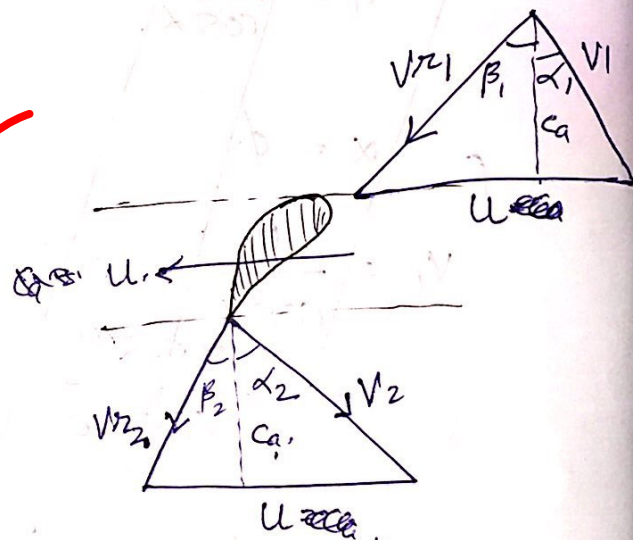 Vr1
β1
α1
V1
Ca
U
U
β2
α2
Vr2
V2
Ca
U